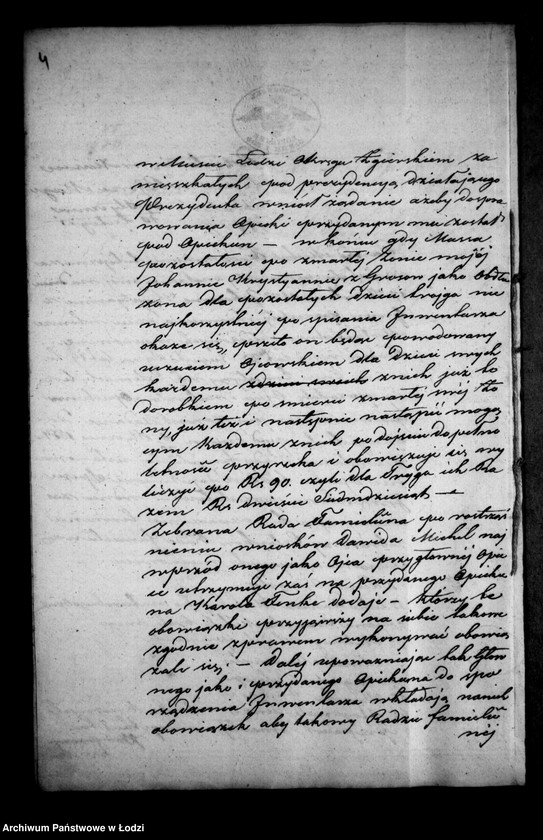 4
w mieście Łodzi Okręgu Zgierskiem za
mieszkałych pod prezydencyą działającego
Prezydenta wniósł żądanie ażeby do spra
wowania Opieki przydanym mu został
pod Opiekun — w końcu gdy Massa
pozostałości po zmarłej żonie mojéj
Johannie Krystyannie z jako
żona dla pozostałych dzieci trojga nie
najkorzystniéj po spisaniu Inwentarza
okaże się, przeto on będąc powodowany
uczuciem Ojcowskiem dla dzieci swych
każdemu z nich już to
dorobkiem po śmierci zmarłej mej żo
ny, już też i następnie nastąpić mogą
cym każdemu z nich po dojściu do pełno
letności przyrzeka i obowiązuje się wy
liczyć po Rs 90. czyli dla Trojga ich Ra
zem Rs dwieście Siedmdziesiąt —
Zebrana Rada Familijna po roztrząś
nieniu wniosków Dawida Michel naj
wprzód onego jako Ojca przy głównéj Opie
ce utrzymuje zaś na przydanego Opieku
na Karola Fenke dodaje — którzy
obowiązki przyjąwszy na siebie takowe
zgodnie z prawem wykonywać obowią
zali się; — Daléj upoważniając tak Głów
nego jako i przydanego Opiekuna do spo
rządzenia Inwentarza wkładają na nich
obowiązek aby takowy Radzie familij
néj
Archiwum Państwowe w Łodzi